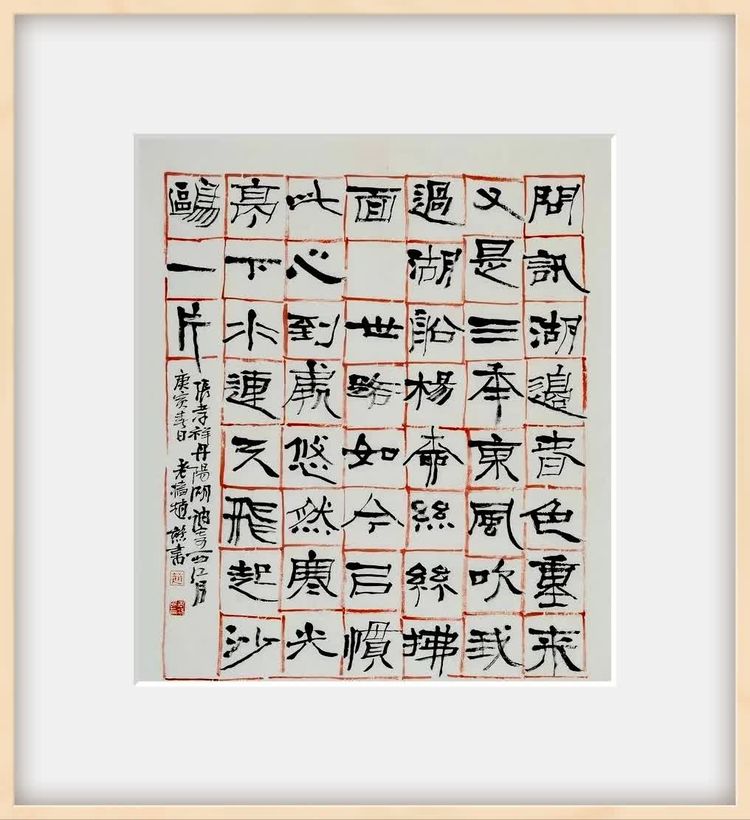 問訊湖邊春色重来
又是三秊東風吹我
過湖船楊柳絲絲拂
面 世路如今已慣
此心到處悠然寒光
亭下水連天飛起沙
鷗一片
張孝祥丹陽湖詞寄西江月
庚寅春日 老趙熊書